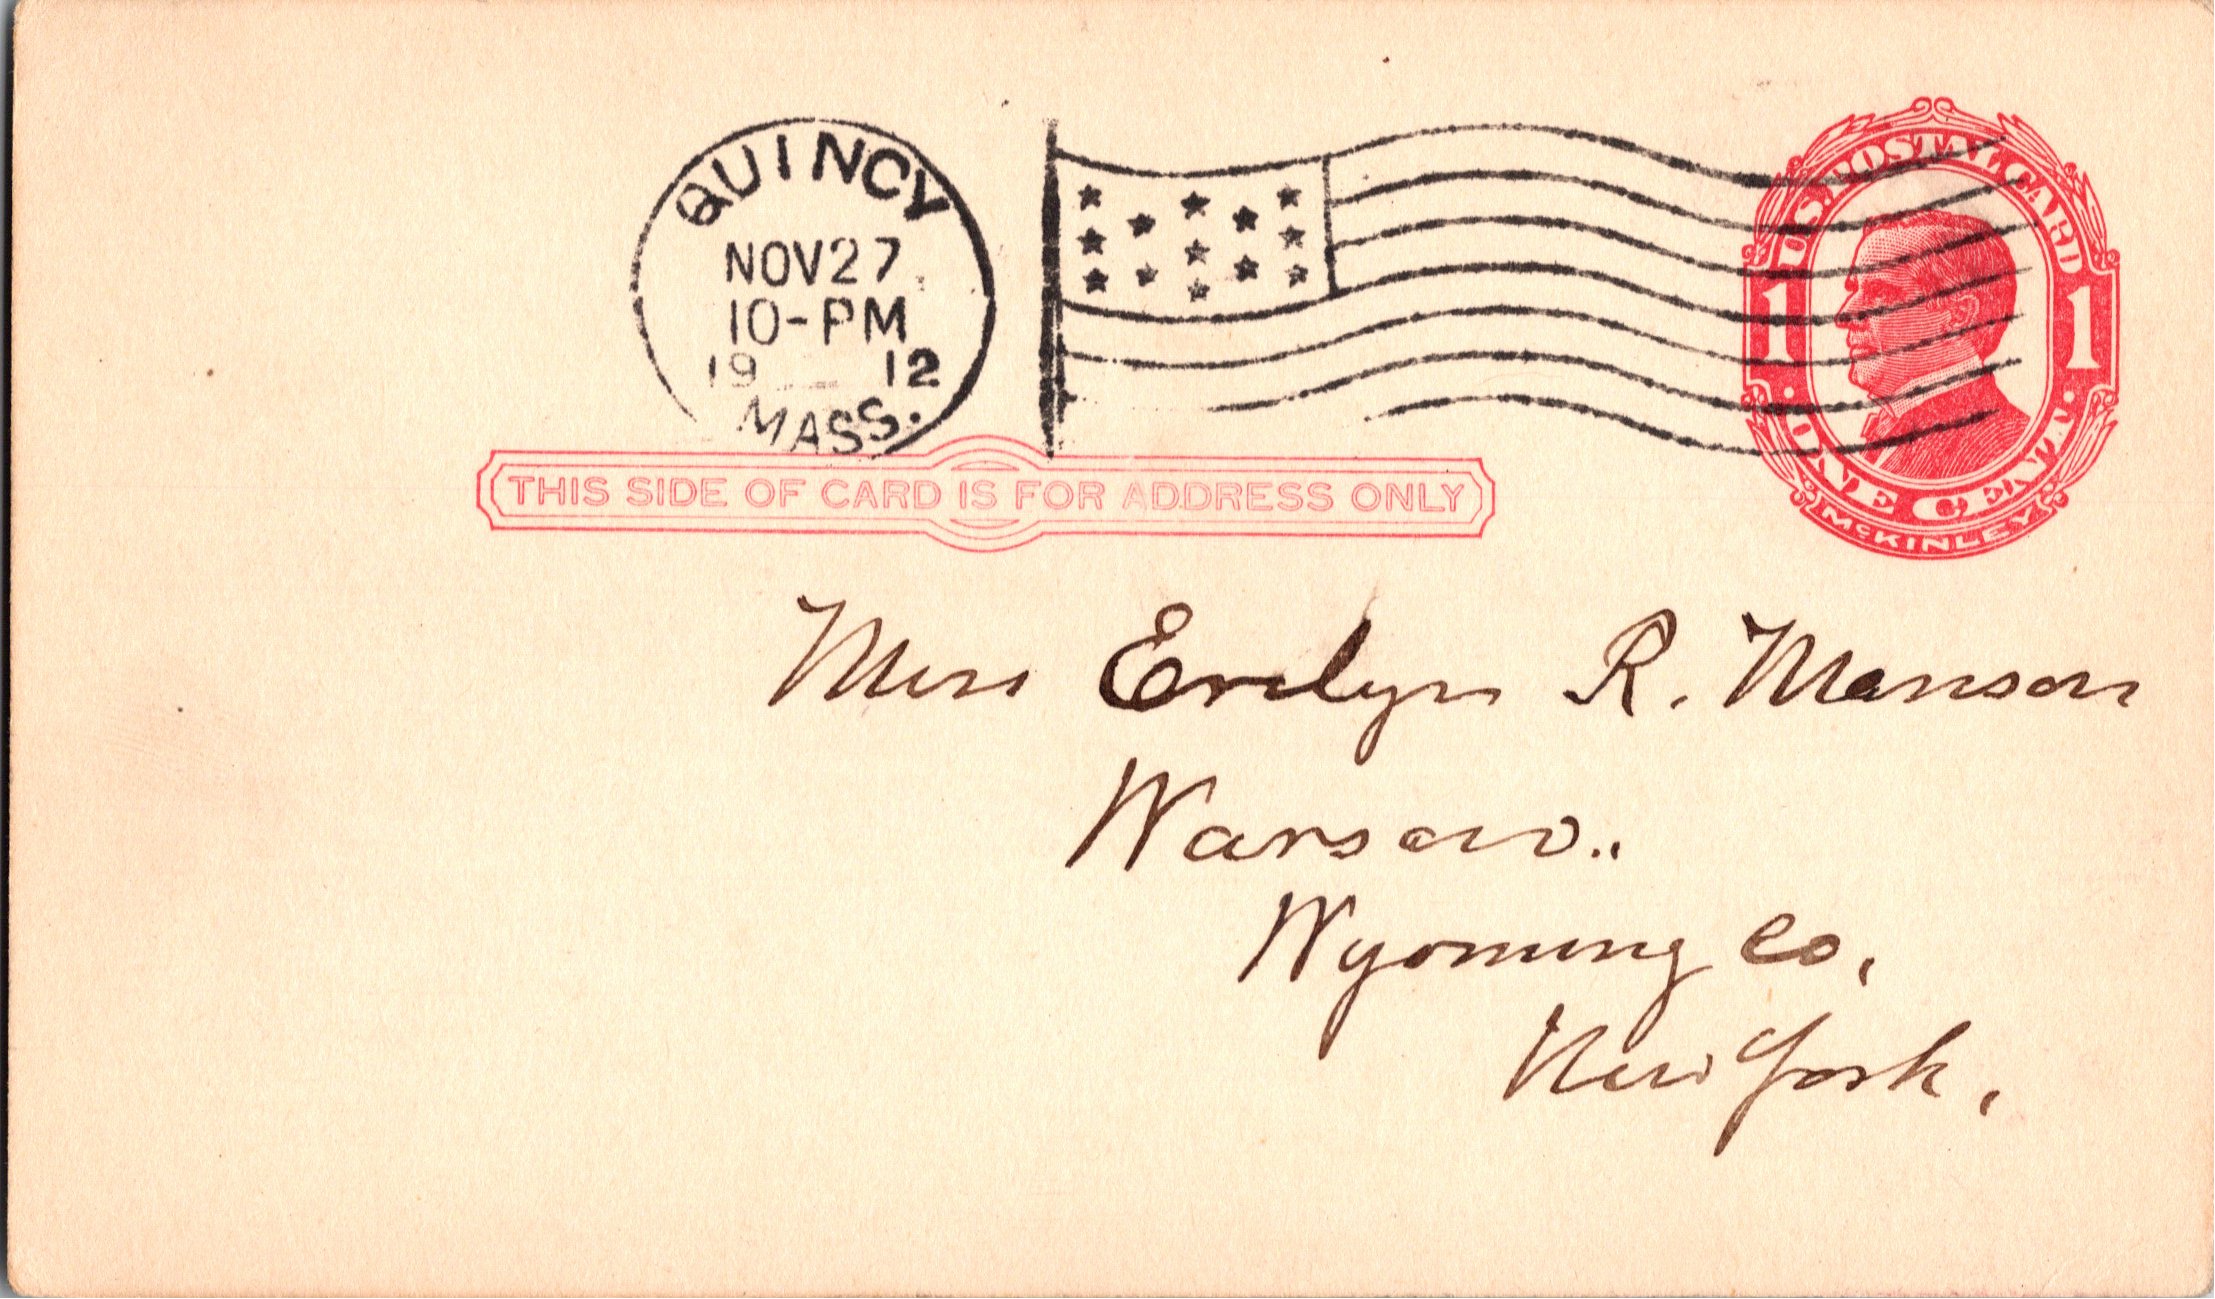 QUINCY
NOV 27
10-PM
19 12
MASS.
U.S. POSTAL CARD
1 1
ONE CENT
McKINLEY
THIS SIDE OF CARD IS FOR ADDRESS ONLY
Miss Evelyn R. Manson
Warsaw..
Wyoming Co,
New York,